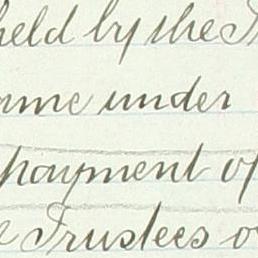 held by the
under
payment of
Trustees